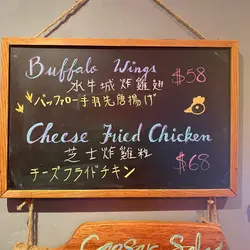 Buffalo Wings
水牛城炸雞翅 $58
バッファロー手羽先唐揚げ
Cheese Fried Chicken
芝士炸雞粒 $68
チーズフライドチキン
Caesar Salad